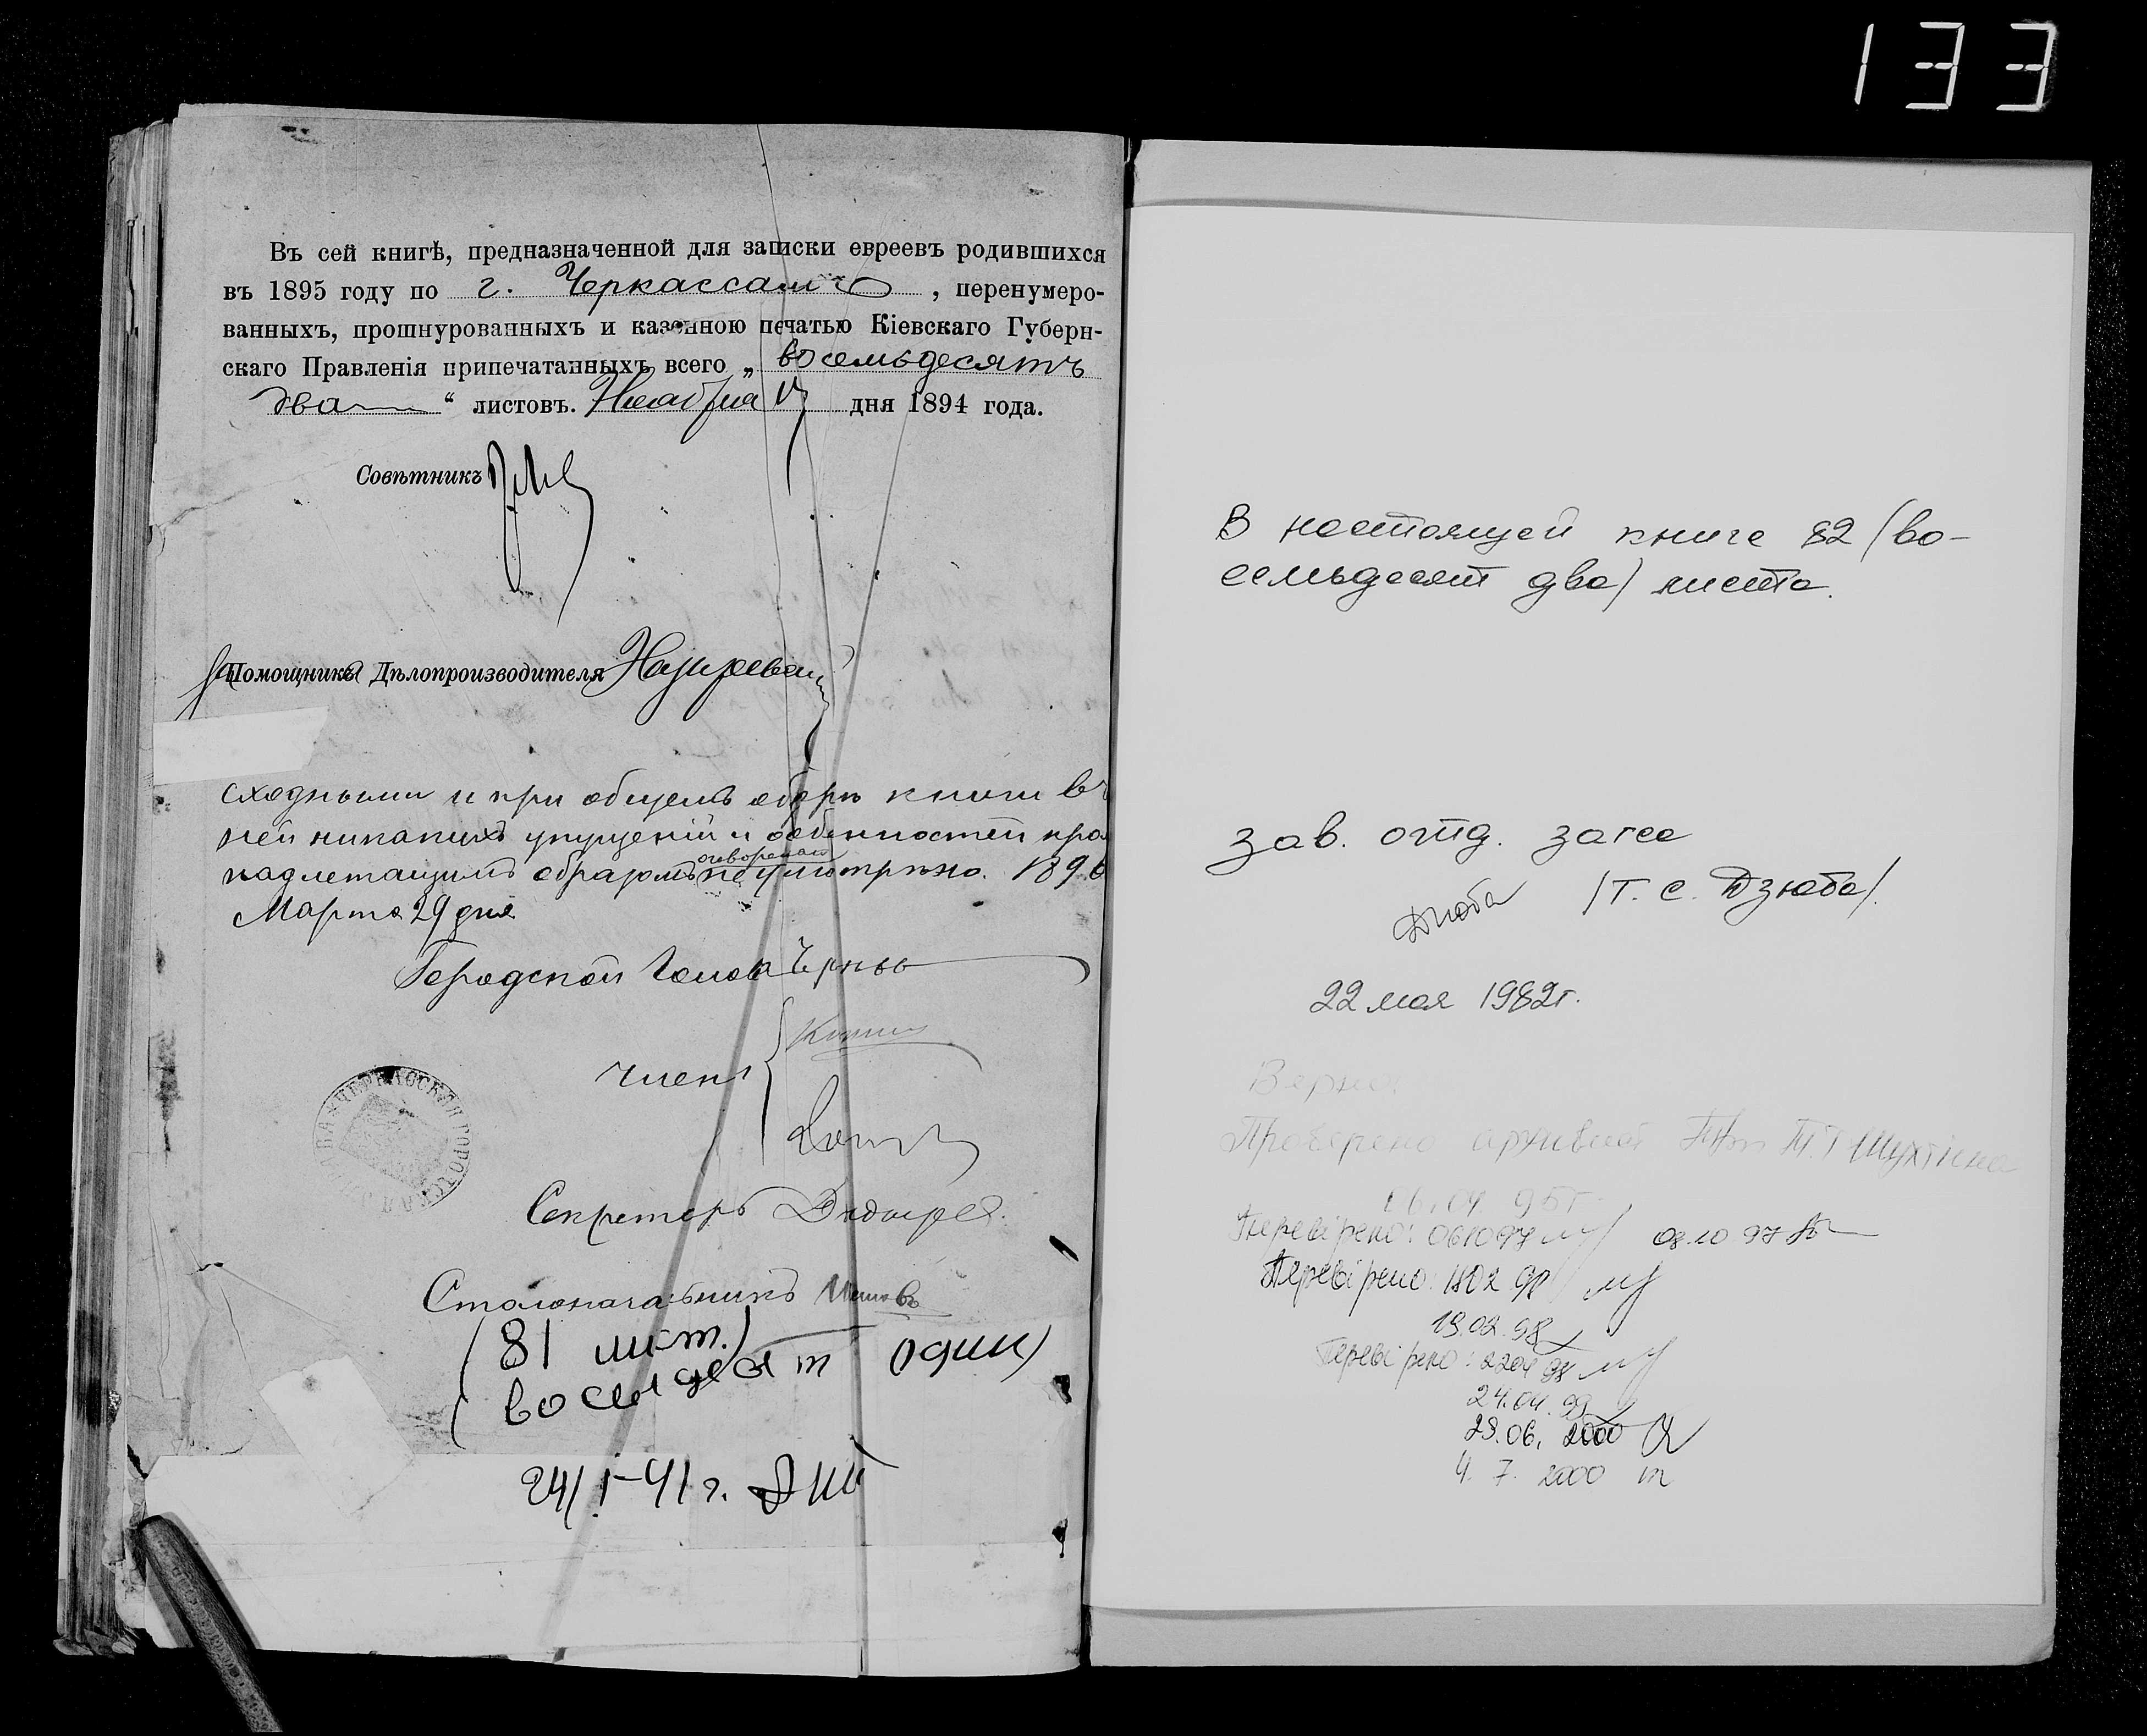 133
Въ сей книгѣ, предназначенной для записки евреевъ родившихся
въ 1895 году по г. Черкассамъ, перенумеро-
ванныхъ, прошнурованныхъ и казенною печатью Кіевскаго Губерн-
скаго Правленія припечатанныхъ всего „восемьдесятъ
два“ листовъ. Ноября дня 1894 года.
Совѣтникъ
За Помощника Дѣлопроизводителя
сходными и при общемъ обзорѣ книги въ
ней никакихъ упущеній и особенностей
надлежащимъ образомъ не усмотрѣно. 1896
оговоренных
Марта 29 дня
Городской Голова
Члены
ЧЕРКАССКАЯ ГОРОДСКАЯ УПРАВА
Секретарь
Столоначальникъ
(81 лист.)
(восемдесят один)
24/I-41 г.
В настоящей книге 82 (во-
семьдесят два) листа.
зав. отд. загса
Дзюба /Т. С. Дзюба/.
22 мая 1982г.
Верно
Проверено
06.04.95г
Перевірено: 061097 08.10 97
Перевірено: 1802 98
19.02.98
Перевірено: 2204 98
24.04.99
29.06. 2000
4. 7. 2000